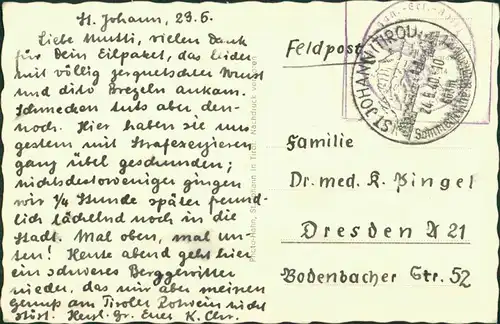 St. Johann, 23.6.
Liebe Mutti, vielen Dank
für Dein Eilpaket, das leider
mit völlig zerquetschter Wurst
und dito Brezeln ankam.
Schmecken tuts aber den-
noch. Hier haben sie uns
gestern mit Strafexerzieren
ganz übel geschunden;
nichtsdestoweniger gingen
wir ¼ Stunde später freund-
lich lächelnd noch in die
Stadt. Mal oben, mal un-
ten! Heute abend geht hier
ein schweres Berggewitter
nieder, das mir aber meinen
genuß am Tiroler Rotwein nicht
stört. Herzl. Gr. Euer K. Chr.
Nachdruck verboten
St. Johann in Tirol
Feldpost
ST. JOHANN (TIROL)
24.6.40.-10
Familie
Dr. med. K. Pingel
Dresden A 21
Bodenbacher Str. 52